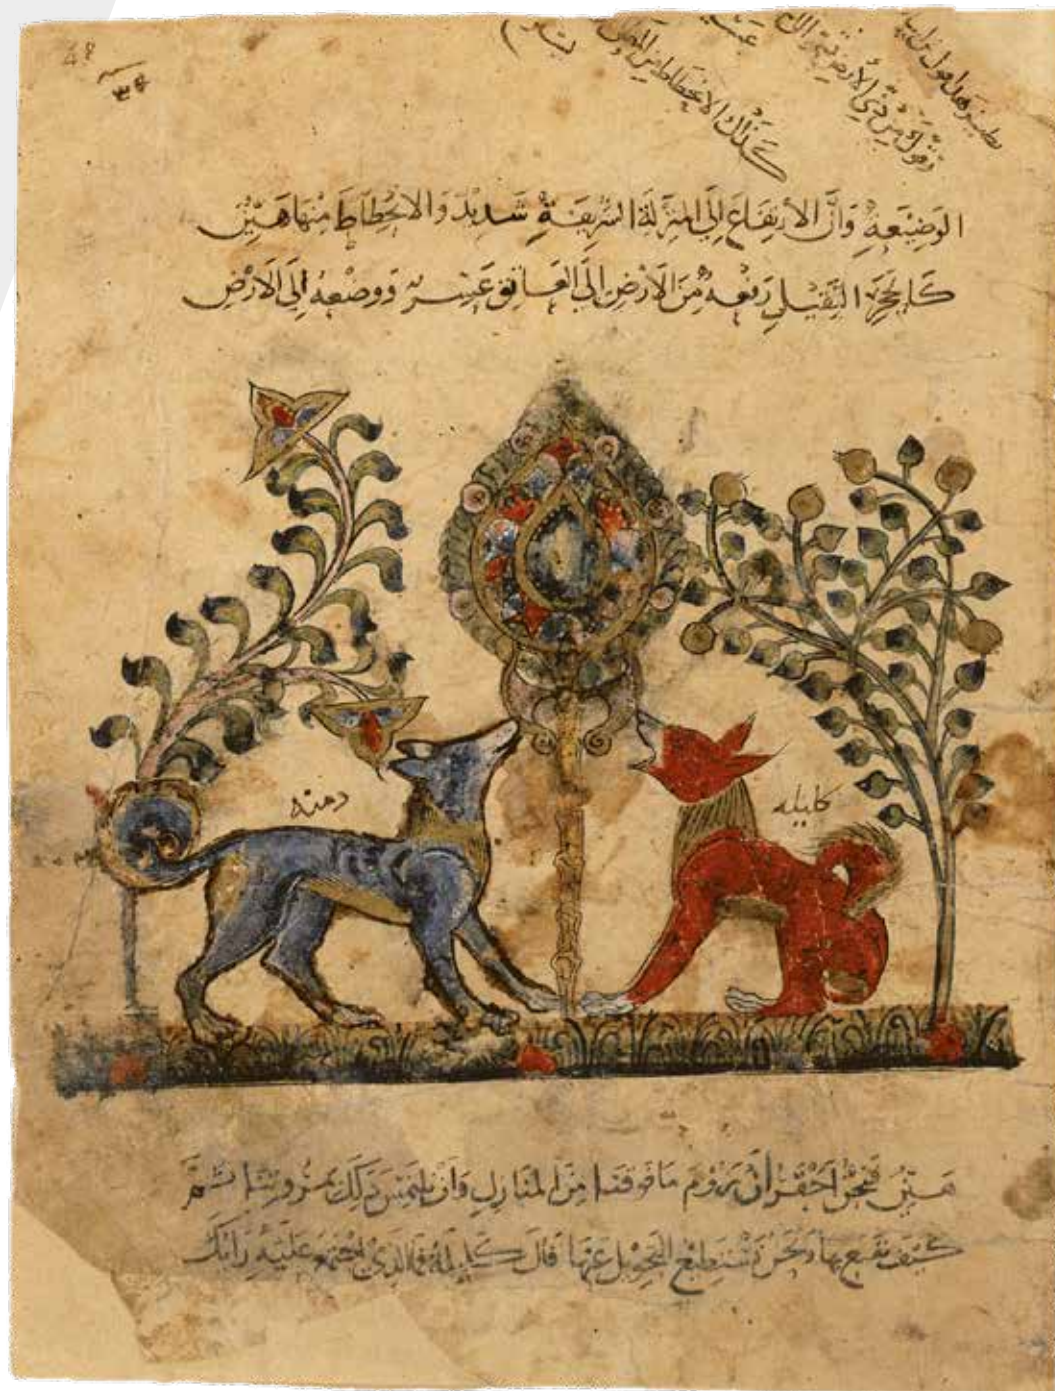 كذلك الانحطاط من
الوَضِيْعَةِ وَأنَّ الارتِفَاعَ إلَى المنزلَةِ الشريفَةِ شَدِيدٌ وَالانحِطَاطَ مِنهَا هَيّنٌ
كَالحَجَرِ الثَّقِيْلِ رَفعهُ مِنَ الأرْضِ إلَى العَاتِق عَسِرٌ وَوضعْهُ إلَى الأرْضِ
دمنه
كليله
هَيّنٌ فَنحْنُ أحَقُّ أنْ نَرُوْمَ مَا فَوقنا مِنَ المنَازِلِ وَأن نلتَمِسَ ذَلِكَ بمُروءتِنَا ثُمَّ
كَيْفَ نقنَع بهَا وَنحْنُ نَسْتَطِيْعُ التَّحوِيل عَنهَا قَالَ كَلِيْلَةُ فَمَا الَّذِيْ اجْتمَعَ عَلَيْهِ رَايُكَ